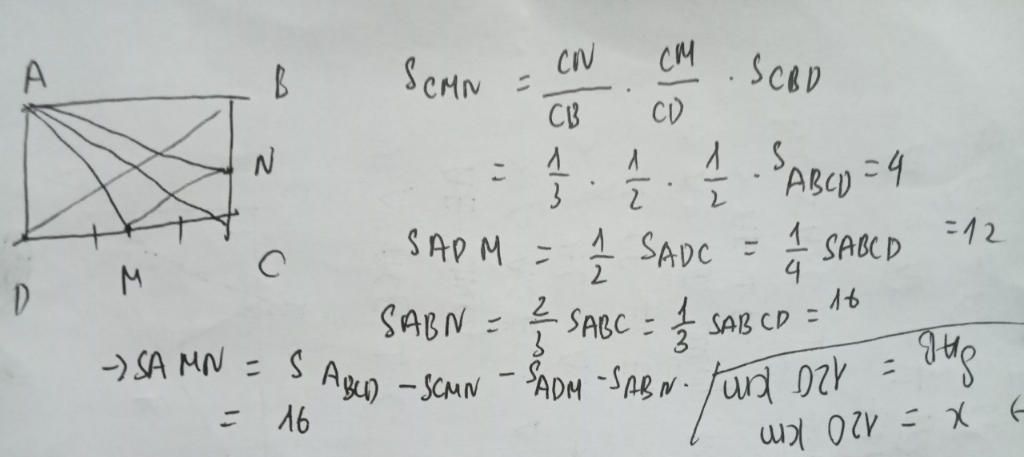 A
B
N
D
M
C
S CMN = CN/CB . CM/CD . S CBD
= 1/3 . 1/2 . 1/2 . S ABCD = 4
S ADM = 1/2 S ADC = 1/4 SABCD = 12
SABN = 2/3 SABC = 1/3 SABCD = 16
→ SAMN = S ABCD - SCMN - SADM - SABN.
= 16
x = 120 km
SAB = 120 km